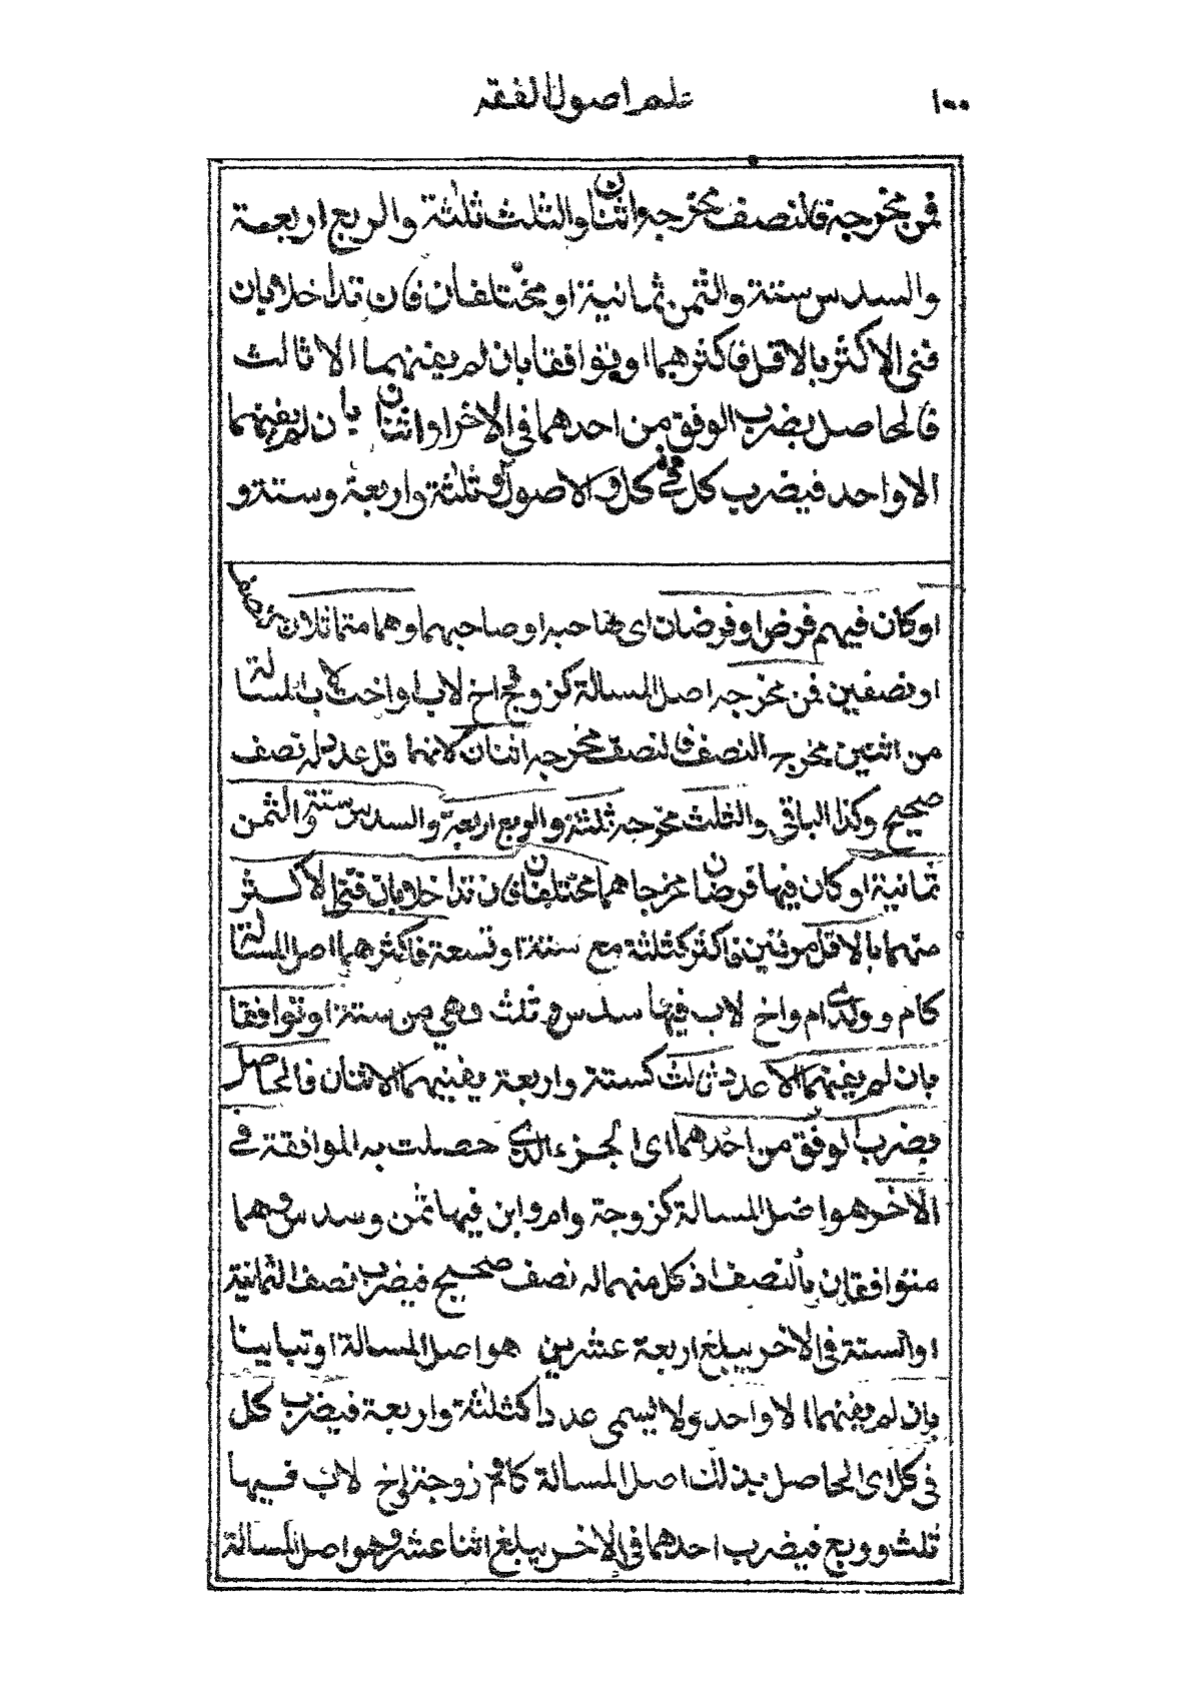 ١٠٠
علم اصول الفقه
فمن مخرجه فالنصف مخرجه اثنان والثلث ثلثة والربع اربعة
والسدس ستة والثمن ثمانية او مختلفان فان تداخلا بان
فنى الاكثر بالاقل فاكثرهما او توافقا بان لم يفنهما الا ثالث
فالحاصل بضرب الوفق من احدهما فى الاخر او اثنان بان لم يفنهما
الا واحد فيضرب كل فى كل و الاصول ثلثة واربعة وستة و
او كان فيهم فرض او فرضان اى صاحبه او صاحبهما وهما متماثلان
او نصفين فمن مخرجه اصل المسالة كزوج اخ لاب او اخت لاب المسالة
من اثنين مخرج النصف فالنصف مخرجه اثنان لانهما اقل عدد له نصف
صحيح وكذا الباقى والثلث مخرجه ثلثة والربع اربعة والسدس ستة والثمن
ثمانية او كان فيها فرضان مخرجاهما مختلفان فان تداخلا بان فنى الاكثر
منهما بالاقل مرتين فاكثر كثلثة مع ستة او تسعة فاكثرهما اصل المسالة
كام وولدى ام واخ لاب فيها سدس وثلث وهى من ستة او توافقا
بان لم يفنهما الا عدد ثالث كستة واربعة يفنيهما الاثنان فالحاصل
بضرب الوفق من احدهما اى الجزء الذى حصلت به الموافقة فى
الاخر هو اصل المسالة كزوجة وام وابن فيها ثمن وسدس وهما
متوافقان بالنصف اذ كل منهما له نصف صحيح فيضرب نصف الثمانية
او الستة فى الاخر يبلغ اربعة عشرين هو اصل المسالة او تباينا
بان لم يفنهما الا واحد ولا يسمى عددا كثلثة واربعة فيضرب كل
فى كل اى الحاصل بذلك اصل المسالة كام زوجة اخ لاب فيها
ثلث وربع فيضرب احدهما فى الاخر يبلغ اثنا عشر وهو اصل المسالة